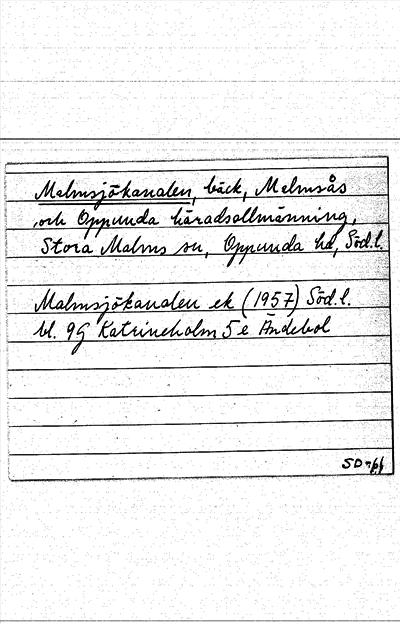 Malmsjökanalen, bäck, Malmsås
och Oppunda häradsallmänning,
Stora Malms sn, Oppunda hd, Söd.l.
Malmsjökanalen ek (1957) Söd.l.
bl. 9G Katrineholm 5e Ändebol
SD